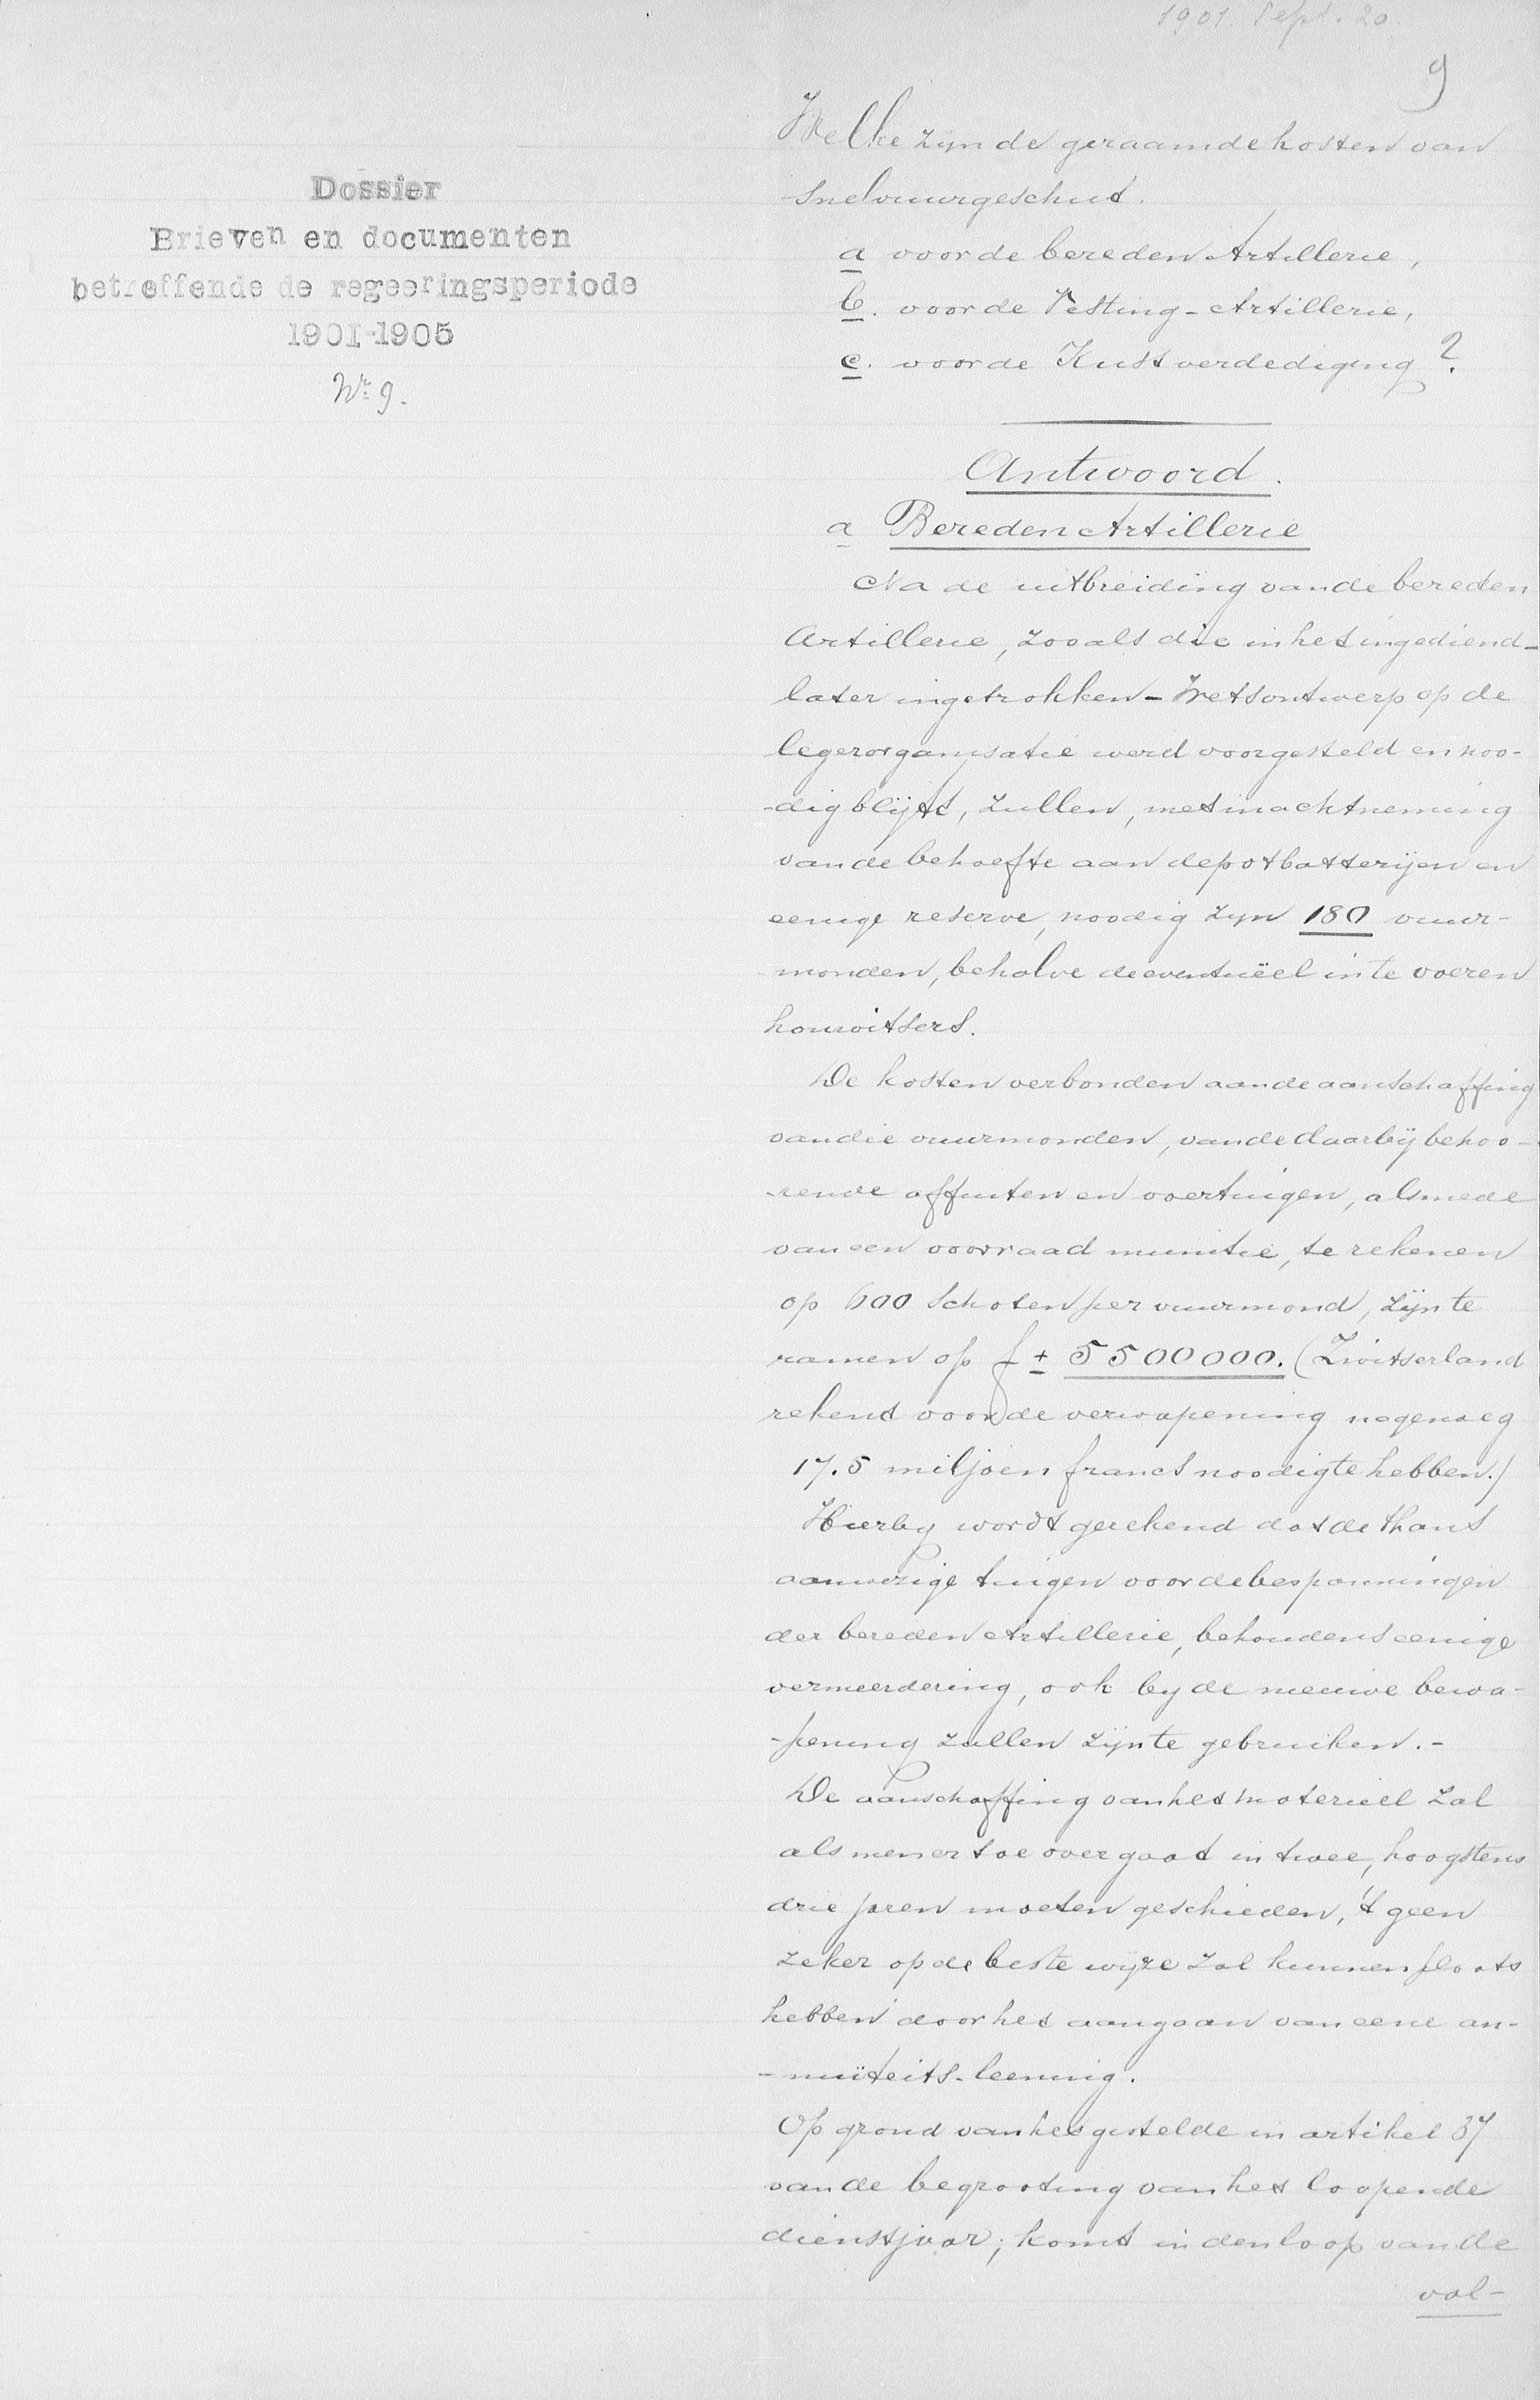 1901. Sept. 20.
9
Dossier
Brieven en documenten
betreffende de regeeringsperiode
1901-1905
Nr. 9.
Welke zijn de geraamde kosten van
snelvuurgeschut.
a voor de bereden Artillerie,
b. voor de Vesting-Artillerie,
c. voor de Kustverdediging?
Antwoord.
a Bereden Artillerie
Na de uitbreiding van de bereden
Artillerie, zooals die in het ingediend-
later ingetrokken-Wetsontwerp op de
legerorganisatie werd voorgesteld en noo-
-dig blijft, zullen, met inachtneming
van de behoefte aan depotbatterijen en
eenige reserve, noodig zijn 180 vuur-
monden, behalve de eventuëel in te voeren
houwitsers.
De kosten verbonden aan de aanschaffing
van die vuurmonden, van de daarbij behoo-
-rende affuiten en voertuigen, alsmede
van een voorraad munitie, te rekenen
op 600 schoten per vuurmond, zijn te
ramen op f ± 5500000. (Zwitserland
rekent voor de verwapening nagenoeg
17.5 miljoen francs noodig te hebben.)
Hierby wordt gerekend dat de thans
aanwezige tuigen voor de bespanningen
der bereden Artillerie, behoudens eenige
vermeerdering, ook by de nieuwe bewa-
-pening zullen zijn te gebruiken.-
De aanschaffing van het materieel zal
als men er toe overgaat in twee, hoogstens
drie jaren moeten geschieden, 't geen
zeker op de beste wijze zal kunnen plaats
hebben door het aangaan van eene an-
-nuïteits-leening.
Op grond van het gestelde in artikel 37
van de begrooting van het loopende
dienstjaar; komt in den loop van de
vol-